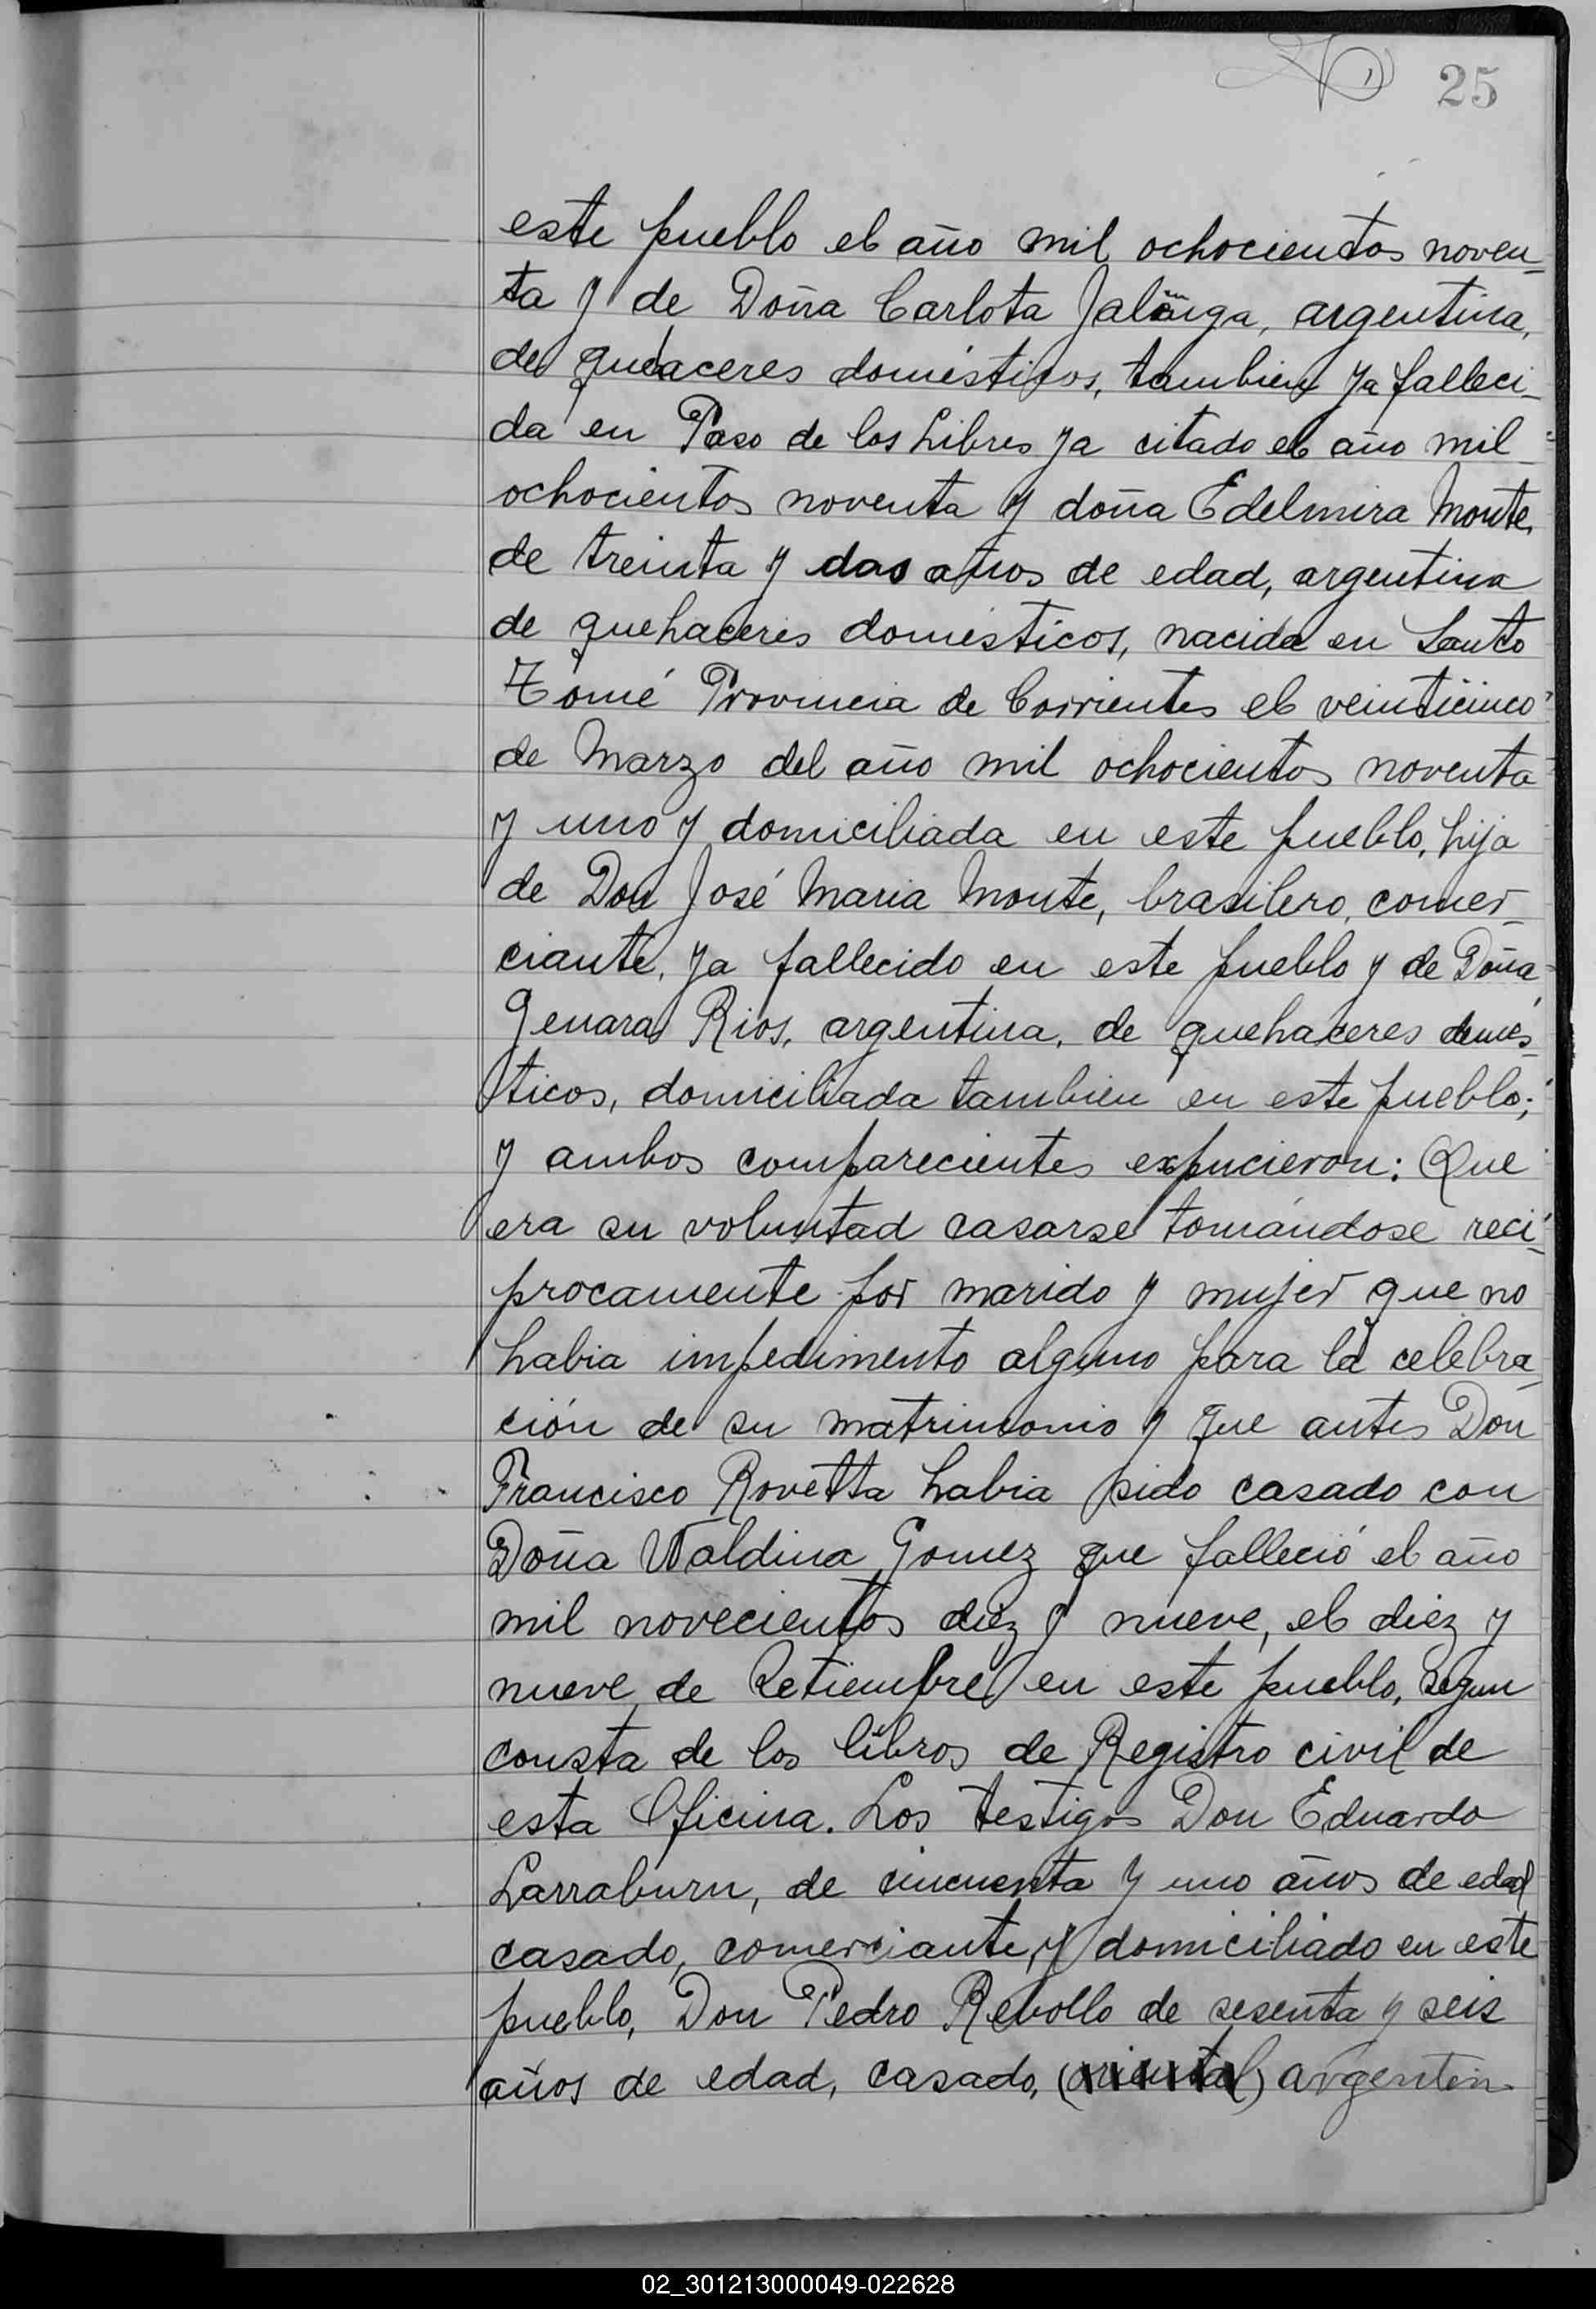 25
este pueblo el año mil ochocientos noven_
ta y de Doña Carlota Jalinga, argentina,
de quehaceres domésticos, tambien ya falleci_
da en Paso de los Libres ya citado el año mil
ochocientos noventa y doña Edelmira Monte,
de treinta y dos años de edad, argentina
de quehaceres domésticos, nacida en Santo
Tomé Provincia de Corrientes el veinticinco
de Marzo del año mil ochocientos noventa
y uno y domiciliada en este pueblo, hija
de Don José Maria Monte, brasilero, comer_
ciante, ya fallecido en este pueblo y de Doña
Genara Rios, argentina, de quehaceres domés_
ticos, domiciliada tambien en este pueblo;
y ambos comparecientes expucieron: Que
era su voluntad casarse tomándose reci_
procamente por marido y mujer que no
habia impedimento alguno para la celebra_
ción de su matrimonio y que antes Don
Francisco Rovetta habia sido casado con
Doña Waldina Gomez que falleció el año
mil novecientos diez y nueve, el diez y
nueve de Setiembre en este pueblo, segun
consta de los libros de Registro civil de
esta Oficina. Los testigos Don Eduardo
Larraburu, de cincuenta y uno años de edad
casado, comerciante, y domiciliado en este
pueblo, Don Pedro Rebollo de sesenta y seis
años de edad, casado, (oriental) argentin
02_301213000049-022628